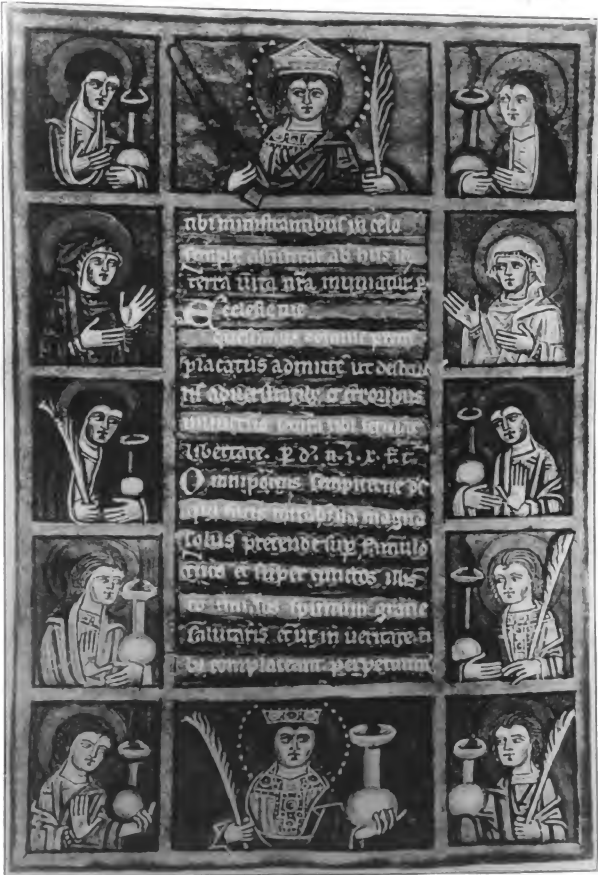 tibi ministrantibus in celo
semper assistitur ab his in
terra uita nr̄a muniatur. p̄
Ecclesie tue
quesumus domine preces
placatus admitte ut destruc
tis aduersitatib; et erroribus
uniuersis secura tibi seruiat
libertate. P. d. n. i. x. f. t.
Omnipotens sempiterne d̄s
qui facis mirabilia magna
solus pretende sup famulo
tuos et super cunctos illis
co missas spiritum gratie
salutaris et ut in ueritate ti
bi complaceant perpetuum